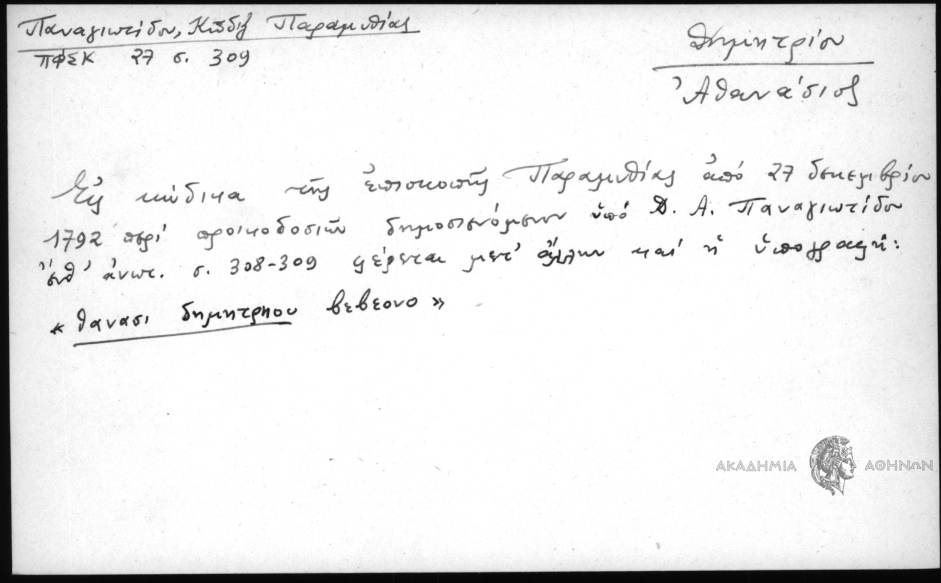 Παναγιωτίδου, Κώδιξ Παραμυθίας
ΠΦΣΚ 27 σ. 309
Δημητρίου
Ἀθανάσιος
Εἰς κώδικα τῆς ἐπισκοπῆς Παραμυθίας ἀπό 27 δεκεμβρίου
1792 περί προικοδοσιῶν δημοσιευόμενον ὑπό Δ. Α. Παναγιωτίδου
ἔνθ' ἀνωτ. σ. 308-309 φέρεται μετ' ἄλλων καί ἡ ὑπογραφή:
« θανασι δημητρηου βεβεονο »
ΑΚΑΔΗΜΙΑ ΑΘΗΝΩΝ